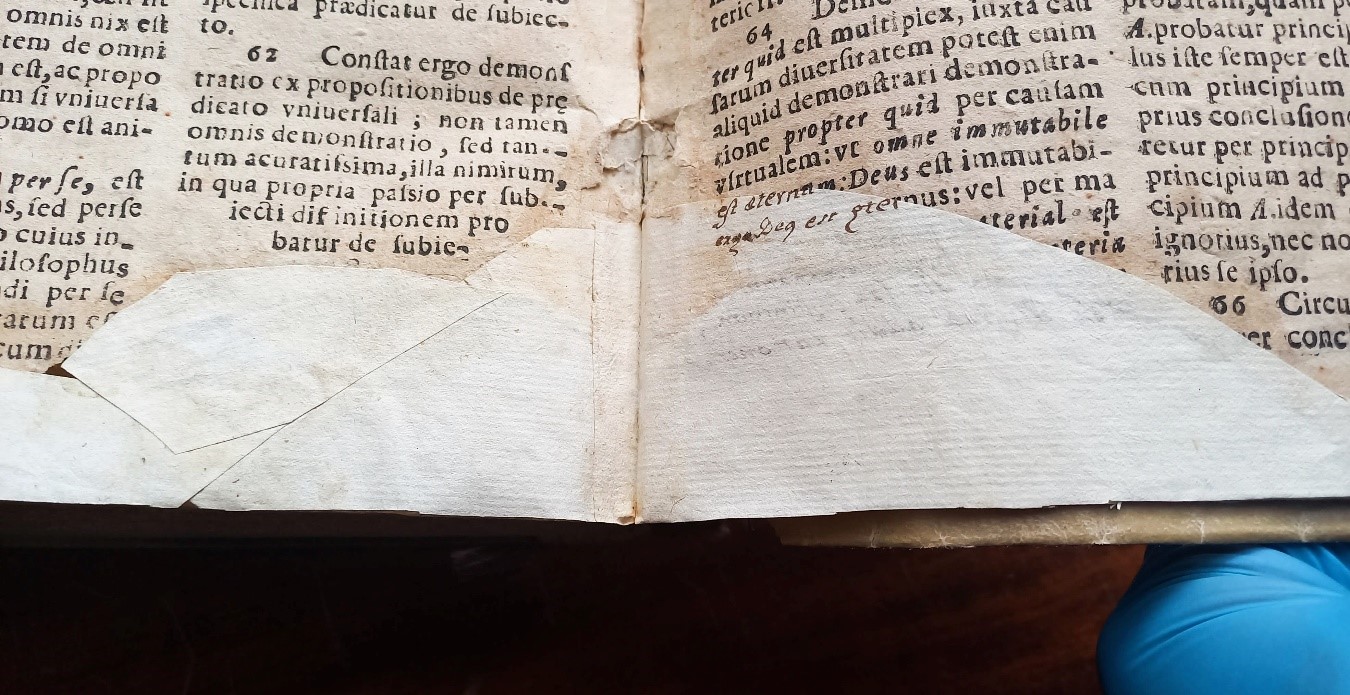 omnis nix est
tem de omni
est, ac propo
m si vniuersa
omo est ani-
per se, est
s, sed perse
cuius in-
ilosophus
di per se
arum
cum
prædicatur de subiec-
to.
62 Constat ergo demons
tratio ex propositionibus de prę
dicato vniuersali ; non tamen
omnis demonstratio, sed tan-
tum acuratissima, illa nimirum,
in qua propria passio per sub-
iecti difinitionem pro
batur de subie-
64
ter quid est multiplex, iuxta cau
sarum diuersitatem potest enim
aliquid demonstrari demonstra-
tione propter quid per causam
virtualem: vt omne immutabile
est æternum: Deus est immutabi-
ergo Deq est ęternus: vel per ma
terial est
teria
A. probatur princip
lus iste semper est
cum principium
prius conclusion
retur per princip
principium ad p
cipium A. idem
ignotius, nec no
tius se ipso.
66 Circu
er conc